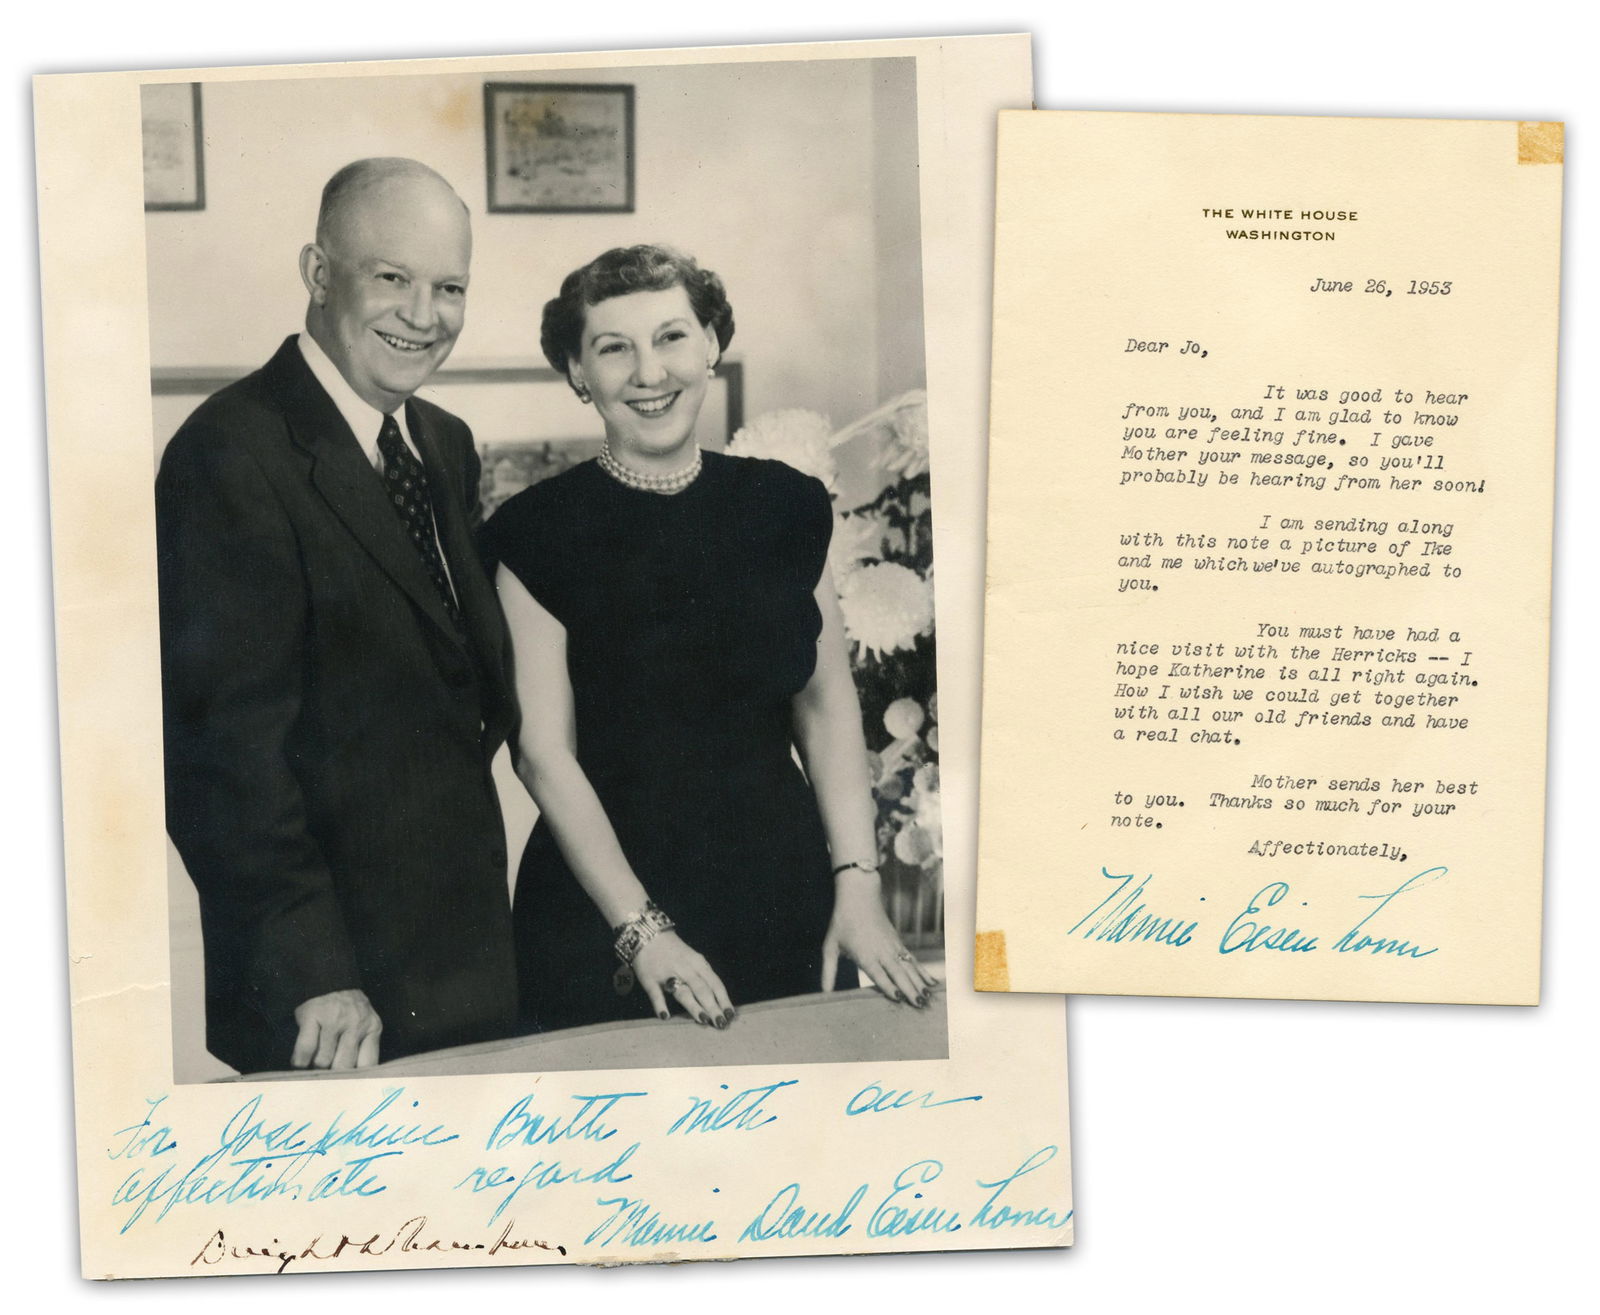 For Josephine Barth with our
affectionate regard
Mamie Doud Eisenhower
Dwight D Eisenhower
THE WHITE HOUSE
WASHINGTON
June 26, 1953
Dear Jo,
It was good to hear
from you, and I am glad to know
you are feeling fine. I gave
Mother your message, so you'll
probably be hearing from her soon!
I am sending along
with this note a picture of Ike
and me which we've autographed to
you.
You must have had a
nice visit with the Herricks -- I
hope Katherine is all right again.
How I wish we could get together
with all our old friends and have
a real chat.
Mother sends her best
to you. Thanks so much for your
note.
Affectionately,
Mamie Eisenhower